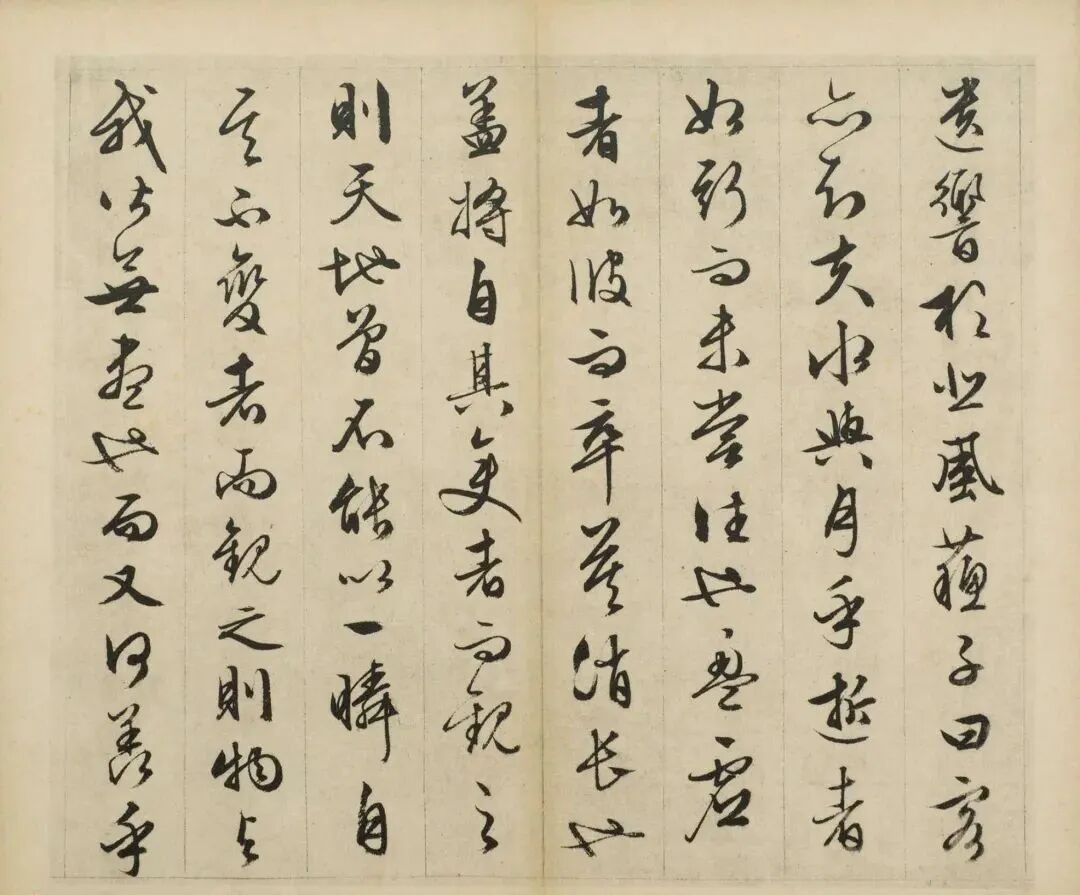 遺響於悲風蘇子曰客
亦知夫水與月乎逝者
如斯而未嘗往也盈虛
者如彼而卒莫消長也
蓋將自其變者而觀之
則天地曾不能以一瞬自
其不變者而觀之則物與
我皆無盡也而又何羨乎